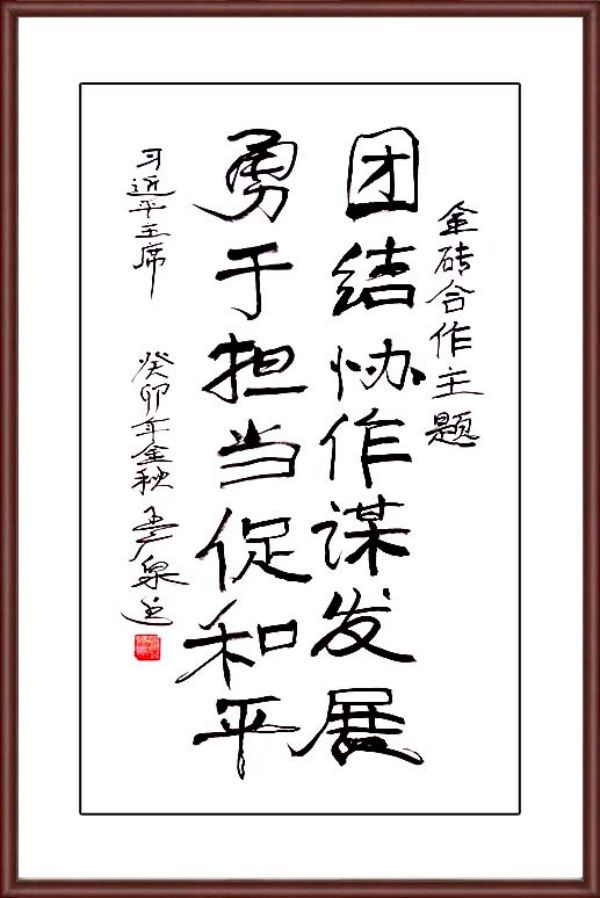 金砖合作主题
团结协作谋发展
勇于担当促和平
习近平主席
癸卯年金秋